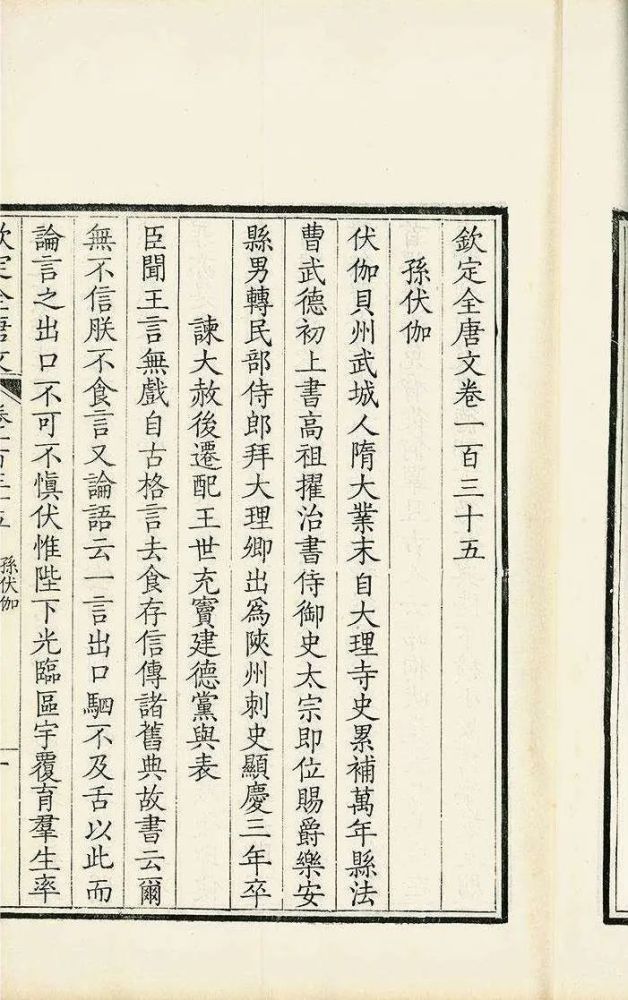 欽定全唐文卷一百三十五
孫伏伽
伏伽貝州武城人隋大業末自大理寺史累補萬年縣法
曹武德初上書高祖擢治書侍御史太宗即位賜爵樂安
縣男轉民部侍郎拜大理卿出爲陝州刺史顯慶三年卒
諫大赦後遷配王世充竇建德黨與表
臣聞王言無戲自古格言去食存信傳諸舊典故書云爾
無不信朕不食言又論語云一言出口駟不及舌以此而
論言之出口不可不慎伏惟陛下光臨區宇覆育羣生率
欽定全唐文 卷一百三十五 孫伏伽 一